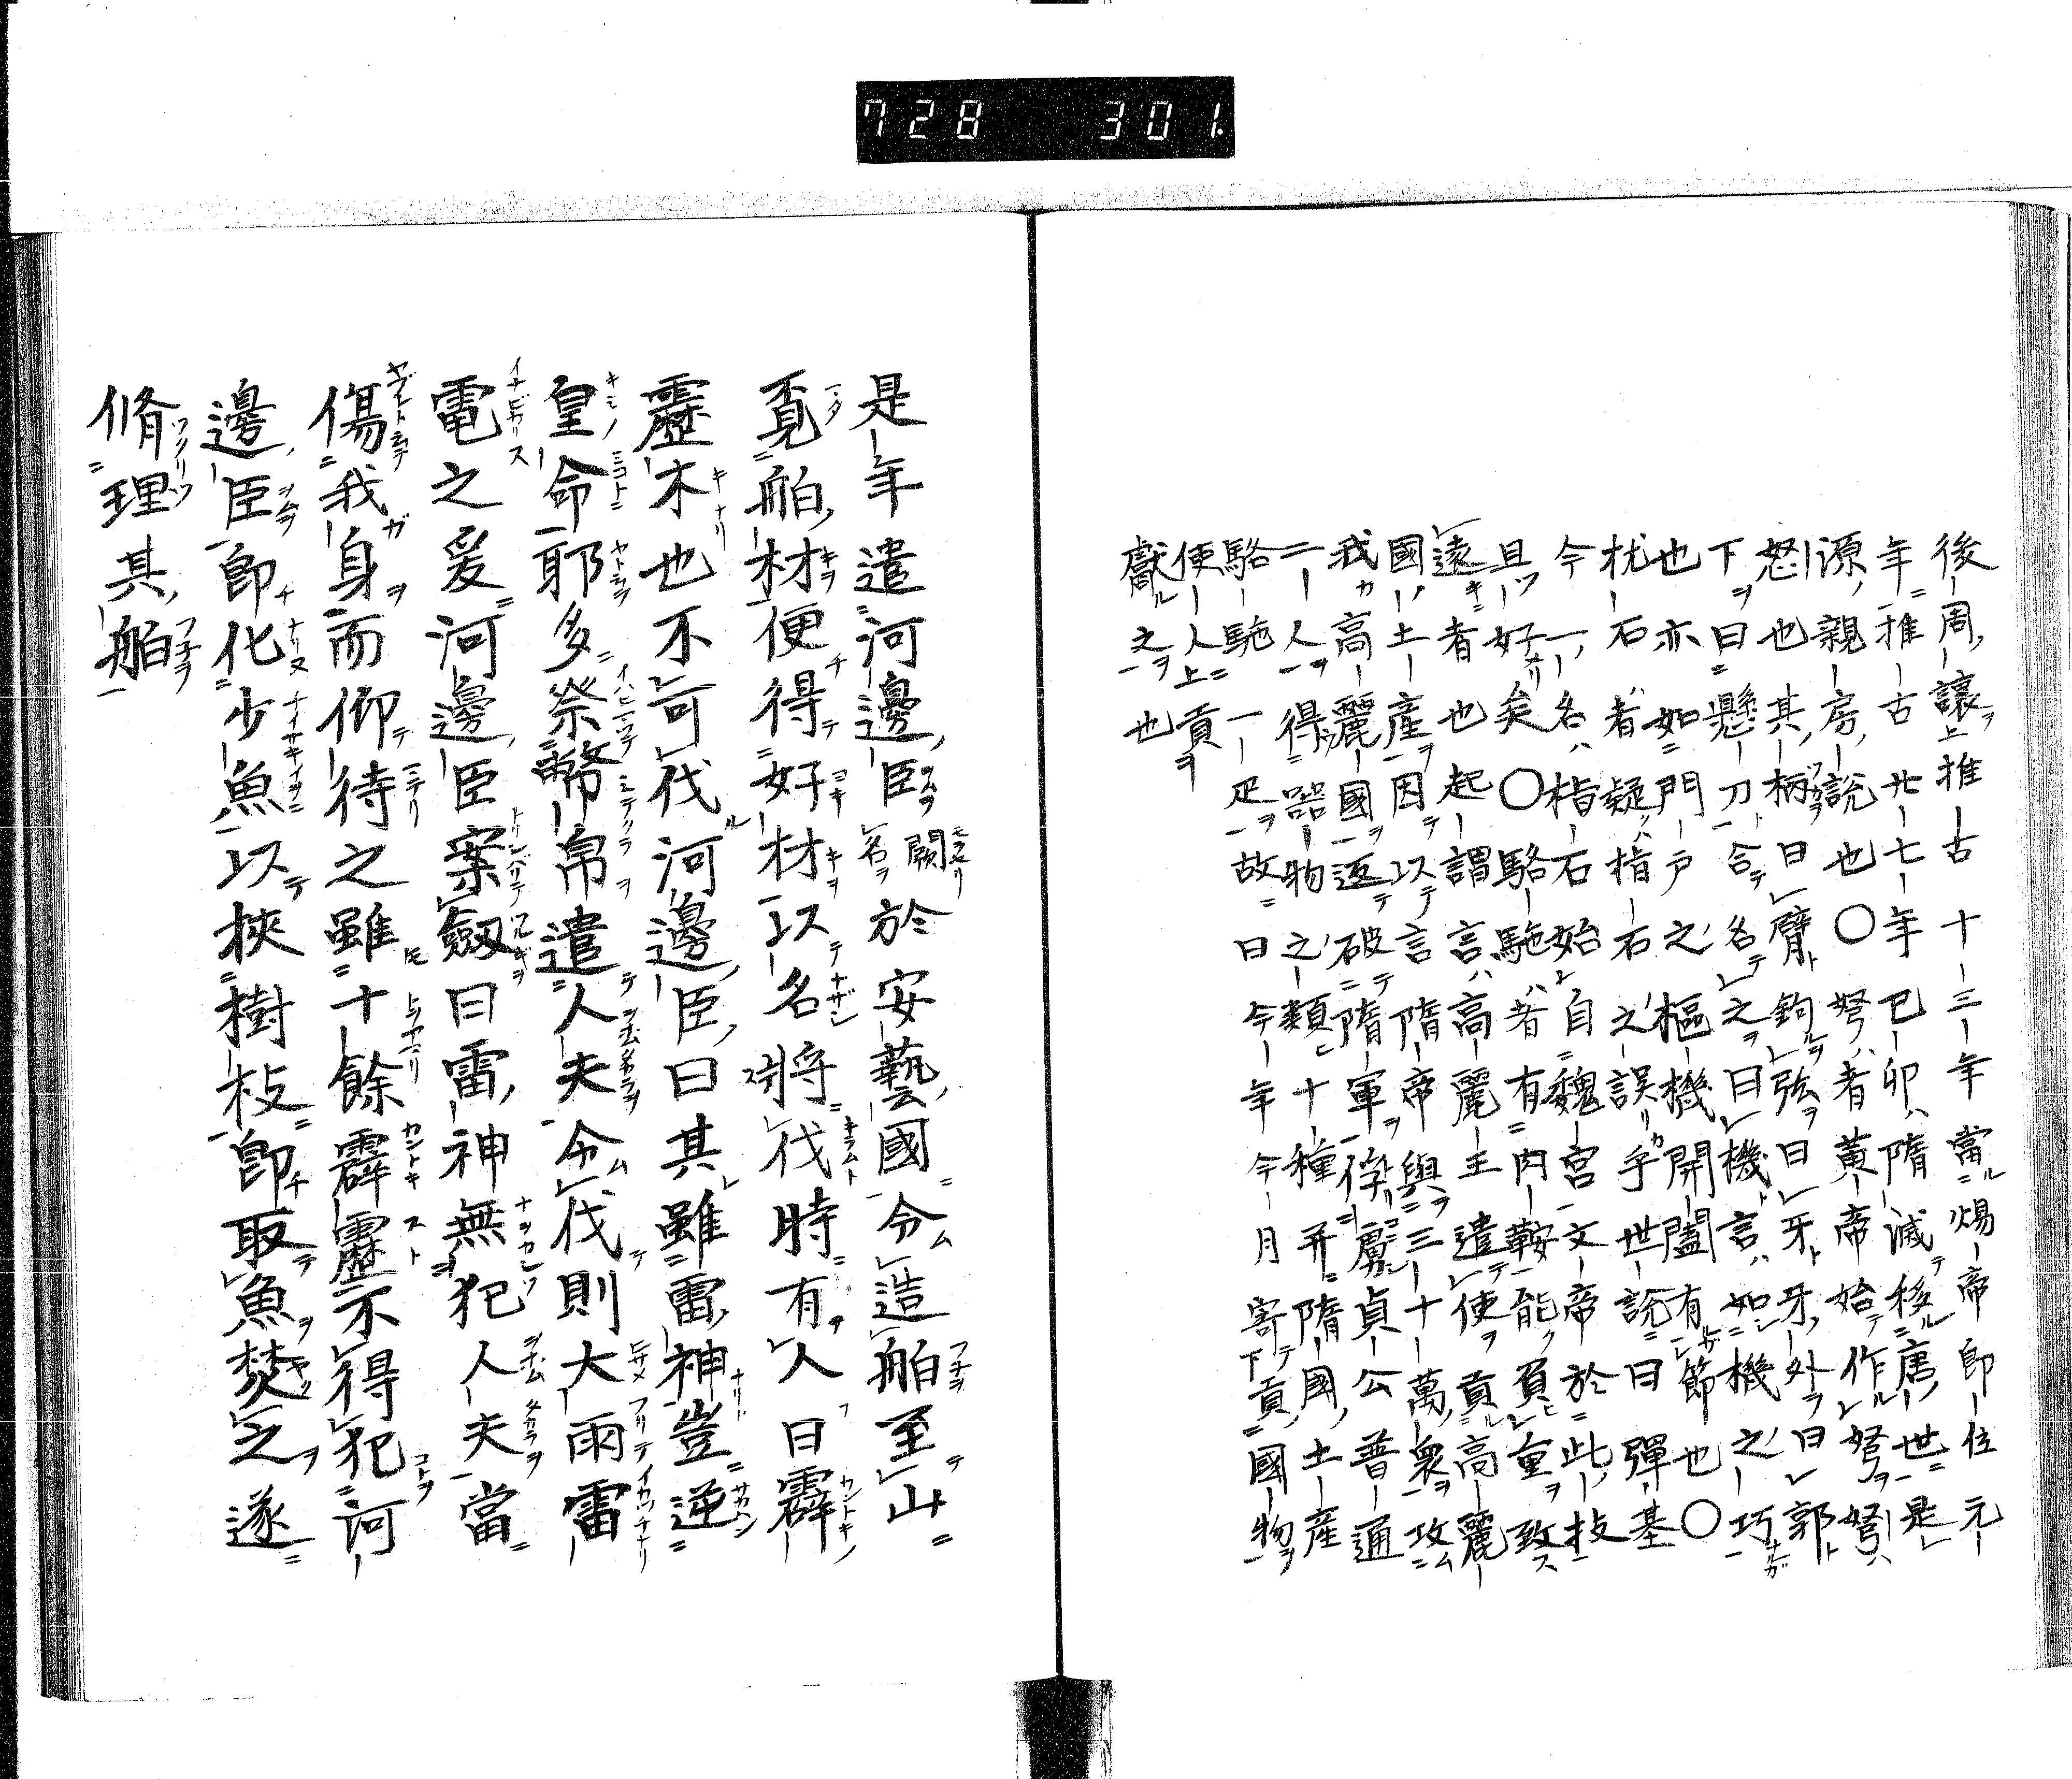 728 301
後周讓上推古十三年當煬帝即位元
年推古廿七年已卯隋滅移唐世是
源親房說也〇弩者黄帝始作弩弩
怒也其柄曰臂鉤弦曰牙牙外曰郭
下曰懸刀合名之曰機言如機之巧
也亦如門戸之樞機開闔有節也〇
枕石者疑指石之誤乎世說曰彈基
今一名指石始自魏宮文帝於此技
且好矣〇駱駞者有肉鞍能負重致
遠者也起謂言高麗王遣使貢高麗
國土產因以言隋帝與三十萬衆攻
我高麗國返破隋軍俘虜貞公普通
二人得器物之類十種并隋國土産
駱駞一疋故曰今年今月寄下貢國物
使人上貢
獻之也
是年遣河邊臣闕名於安藝國令造舶至山
覓舶材便得好材以名將伐時有人曰霹
靂木也不可伐河邊臣曰其雖雷神豈逆
皇命耶多祭幣帛遣人夫令伐則大雨雷
電之爰河邊臣案劔曰雷神無犯人夫當
傷我身而仰待之雖十餘霹靂不得犯河
邊臣即化少魚以挾樹枝即取魚焚之遂
脩理其舶